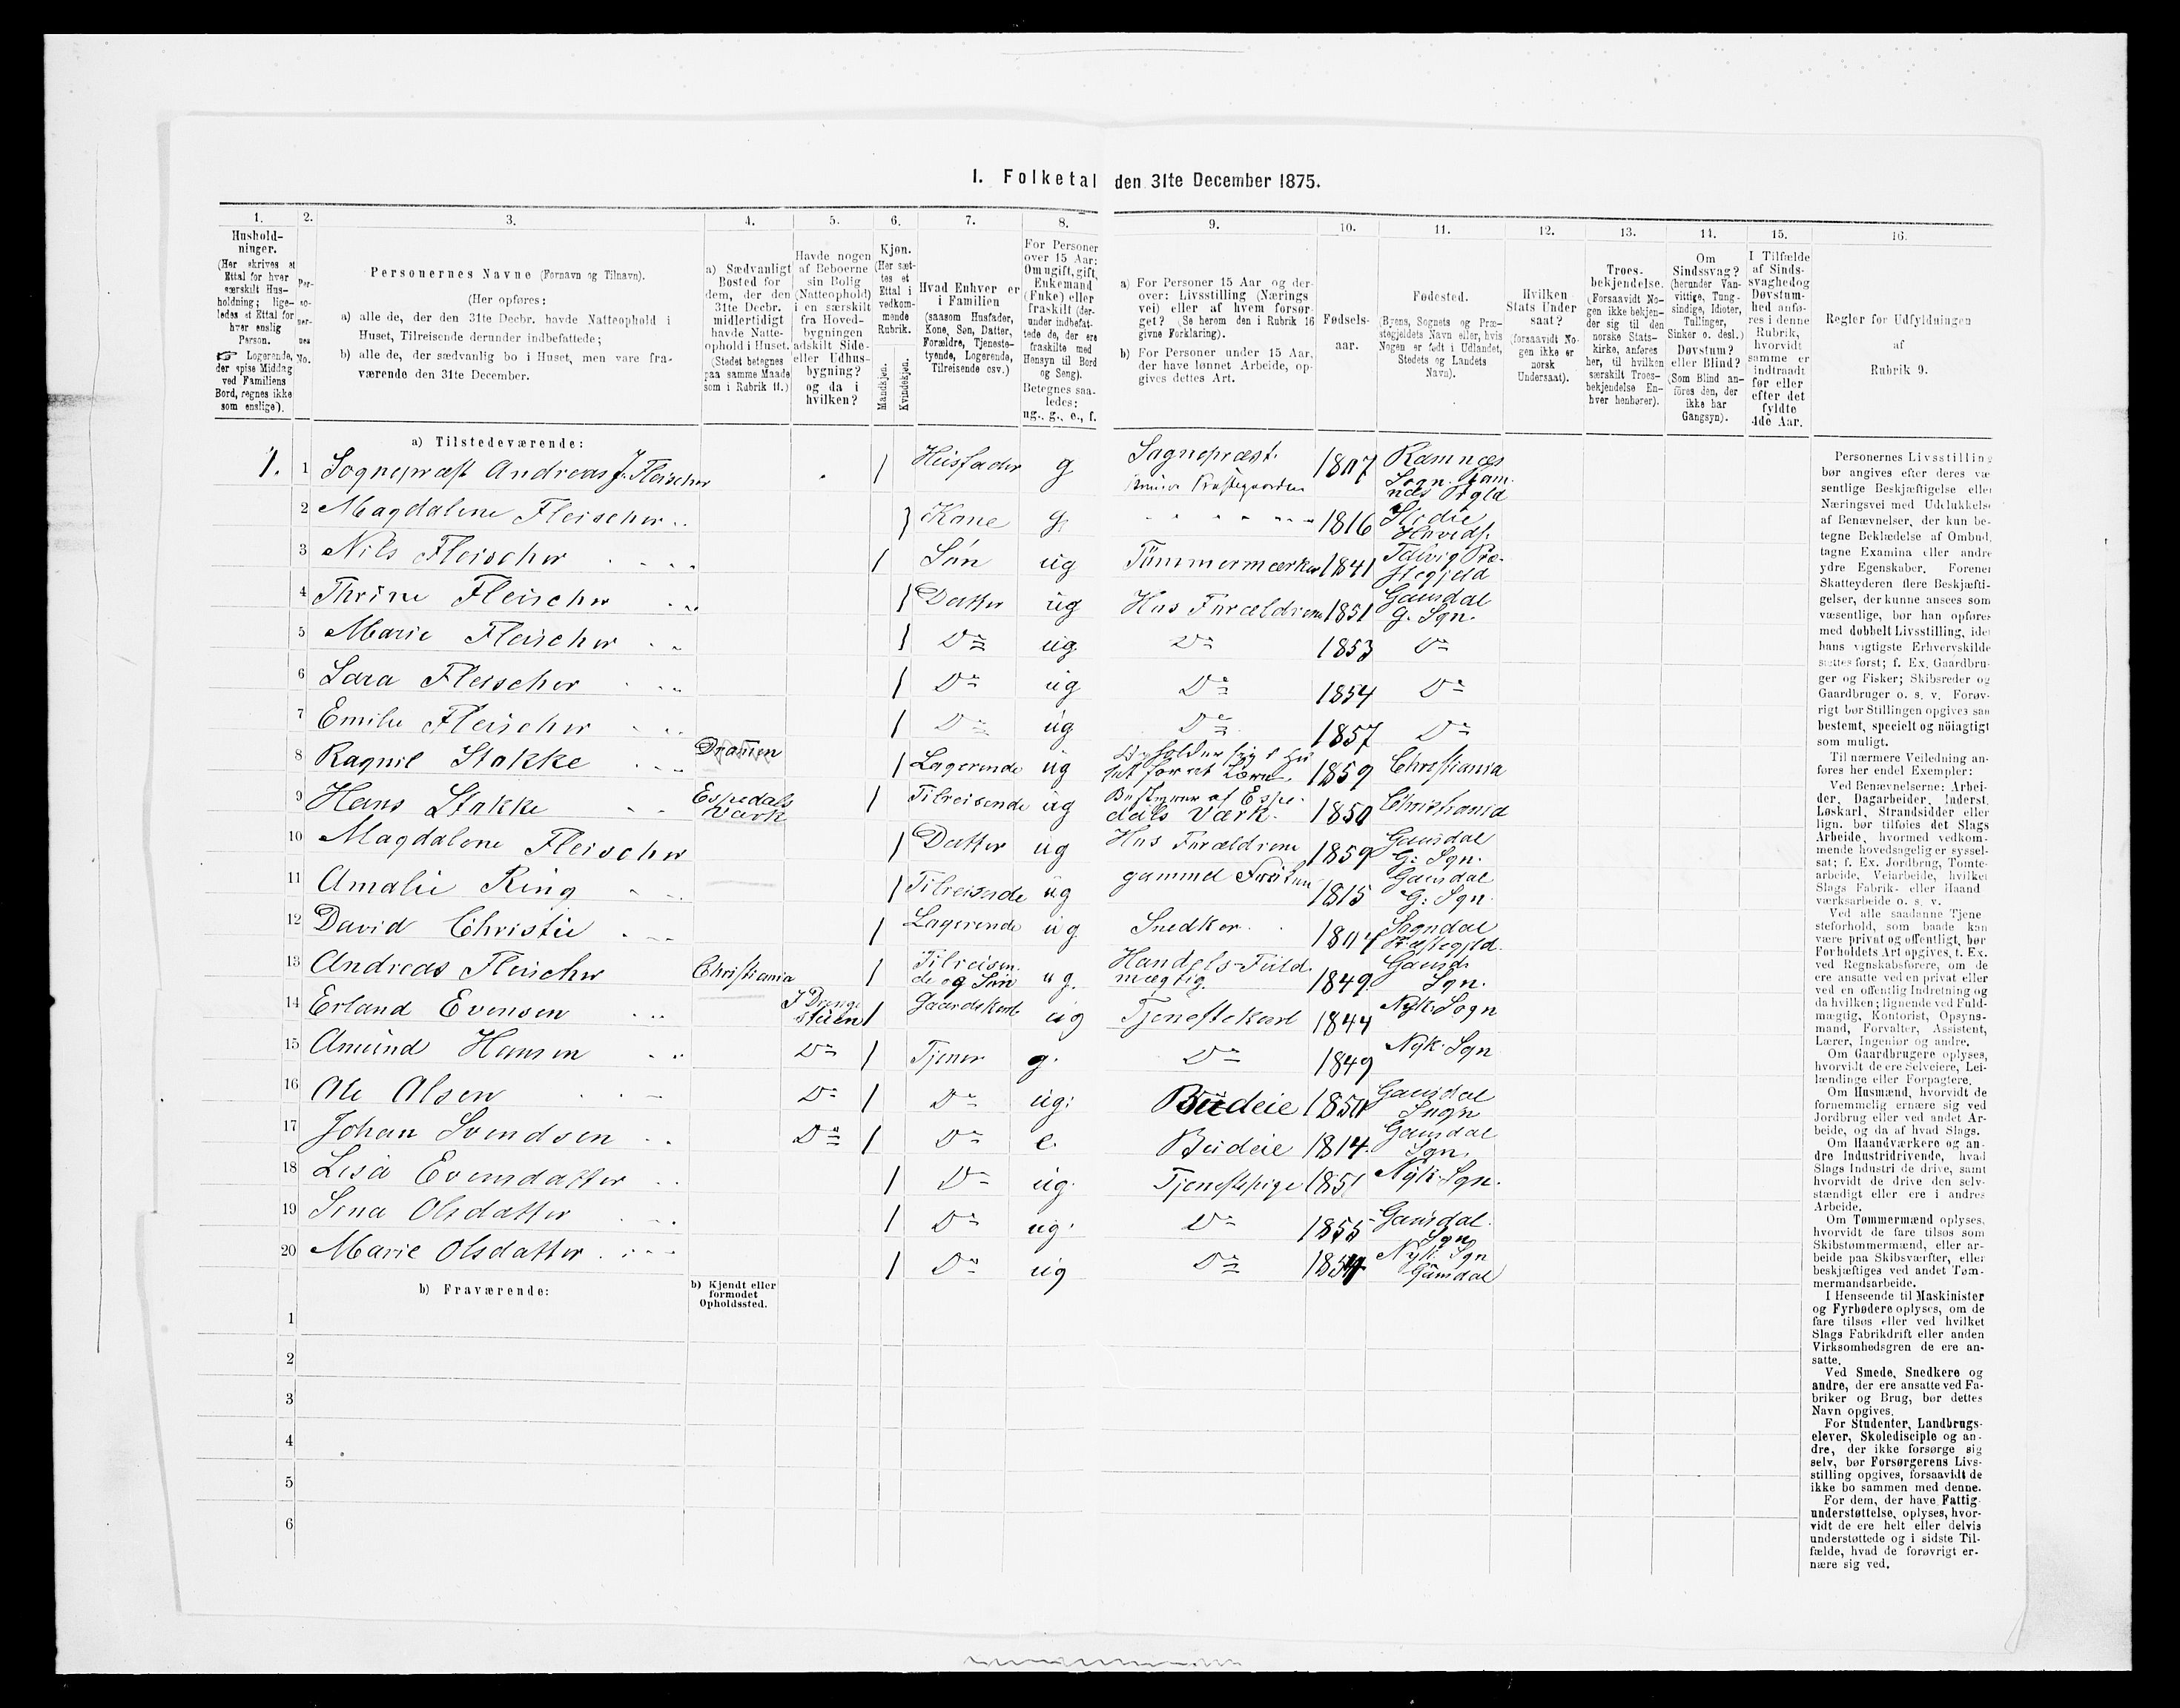 I. Folketal den 31te December 1875.
1. 2. 3. 4. 5. 6. 7. 8. 9. 10. 11. 12. 13. 14. 15. 16.
Hushold-
ninger.
(Her skrives et
Ettal for hver
særskilt Hus-
holdning; lige-
ledes et Ettal for
hver enslig
Person.
☞ Logerende,
der spise Middag
ved Familiens
Bord, regnes ikke
som enslige).
Per-
so-
ner-
nes
No.
Personernes Navne (Fornavn og Tilnavn).
(Her opføres:
a) alle de, der den 31te Decbr. havde Natteophold i
Huset, Tilreisende derunder indbefattede;
b) alle de, der sædvanlig bo i Huset, men vare fra-
værende den 31te December.
a) Sædvanligt
Bosted for
dem, der den
31te Decbr.
midlertidigt
havde Natte-
ophold i Huset.
(Stedet betegnes
paa samme Maade
som i Rubrik 11.)
Havde nogen
af Beboerne
sin Bolig
(Natteophold)
i en særskilt
fra Hoved-
bygningen
adskilt Side-
eller Udhus-
bygning?
og da i
hvilken?
Kjøn.
(Her sæt-
tes et
Ettal i
vedkom-
mende
Rubrik.
Mandkjøn.
Kvindekjøn.
Hvad Enhver er
i Familien
(saasom Husfader,
Kone, Søn, Datter,
Forældre, Tjeneste-
tyende, Logerende,
Tilreisende osv.)
For Personer
over 15 Aar:
Om ugift, gift,
Enkemand
(Enke) eller
fraskilt (der-
under indbefat-
tede de, der ere
fraskilte med
Hensyn til Bord
og Seng).
Betegnes saa-
ledes:
ug., g., e., f.
a) For Personer 15 Aar og der-
over: Livsstilling (Nærings
vei) eller af hvem forsør-
get? (Se herom den i Rubrik 16
givne Forklaring).
b) For Personer under 15 Aar,
der have lønnet Arbeide, op-
gives dettes Art.
Fødsels-
aar.
Fødested.
(Byens, Sognets og Præ-
stegjeldets Navn eller, hvis
Nogen er født i Udlandet,
Stedets og Landets
Navn).
Hvilken
Stats Under
saat?
(forsaavidt No-
gen ikke er
norsk
Undersaat).
Troes-
bekjendelse.
(Forsaavidt No-
gen ikke bekjen-
der sig til den
norske Stats-
kirke, anføres
her, til hvilken
særskilt Troes-
bekjendelse En-
hver henhører).
Om
Sindssvag?
(herunder Van-
vittige, Tung-
sindige, Idioter,
Tullinger,
Sinker o. desl.)
Døvstum?
eller Blind?
(Som Blind an-
føres den, der
ikke har
Gangsyn).
I Tilfælde
af Sinds-
svaghed og
Døvstum-
hed anfø-
res i denne
Rubrik,
hvorvidt
samme er
indtraadt
før eller
efter det
fyldte
4de Aar.
Regler for Udfyldningen
af
Rubrik 9.
a) Tilstedeværende:
1. 1 Sognepræst Andreas J. Fleischer 1 Husfader g Sognepræst. 1807 Ramnæs
Sogn. Ram-
næs Prgld
2 Magdalene Fleischer 1 Kone g. 1816
3 Nils Fleischer 1 Søn ug Tømmermærker 1841
4 Thrine Fleischer 1 Datter ug Hos Forældrene 1851 Gausdal
G. Sgn.
5 Marie Fleischer 1 Do ug Do 1853 Do
6 Sara Fleischer 1 Do ug Do 1854 Do
7 Emilie Fleischer 1 Do ug Do 1857 Do
8 Ragnil Stokke Dramen 1 Logerende ug 1859 Christiania
9 Hans Stokke Espedals
Værk 1 Tilreisende ug Bestyrer af Espe-
dals Værk. 1850 Christiania
10 Magdalene Fleischer 1 Datter ug Hos Forældrene 1859 Gausdal
G: Sgn.
11 Amalie Ring 1 Tilreisnde ug gammel Frøken 1815 Gausdal
G: Sgn.
12 David Christie 1 Logerende ug Snedker. Sogndal
Præstegjld.
13 Andreas Fleischer Christiania 1 Tilreisen-
de og Søn ug. Handels-Fuld-
mægtig. 1849 Gausd.
Sgn.
14 Erland Evensen I Drenge
stuen 1 Gaardskarl ug Tjenestekarl 1844 Nyk. Sogn
15 Amund Hansen Do 1 Tjener g. Do 1849 Nyk. Sgn
16 Ole Olsen Do 1 Do ug: Budeie 1850 Gausdal
Sogn
17 Johan Svendsen Do 1 Do e. Budeie 1814. Gausdal
Sgn.
18 Lisa Evensdatter 1 Do ug. Tjenestepige 1851 Nyk. Sgn.
19 Sina Olsdatter 1 Do ug. Do 1855 Gausdal.
Sgn
20 Marie Olsdatter 1 Do ug Do Nyk. Sgn
Gausdal
b) Fraværende:
b) Kjendt eller
formodet
Opholdssted.
1
2
3
4
5
6
Personernes Livsstilling
bør angives efter deres væ
sentlige Beskjæftigelse eller
Næringsvei med Udelukkelse
af Benævnelser, der kun be-
tegne Beklædelse af Ombud,
tagne Examina eller andre
ydre Egenskaber. Forener
Skatteyderen flere Beskjæfti-
gelser, der kunne ansees som
væsentlige, bør han opføres
med dobbelt Livsstilling, idet
hans vigtigste Erhvervskilde
sættes først; f. Ex. Gaardbru-
ger og Fisker; Skibsreder og
Gaardbruger o. s. v. Forøv-
rigt bør Stillingen opgives saa
bestemt, specielt og nöiagtigt
som muligt.
Til nærmere Veiledning an-
føres her endel Exempler:
Ved Benævnelserne: Arbei-
der, Dagarbeider, Inderst,
Løskarl, Strandsidder eller
lign. bør tilføies det Slags
Arbeide, hvormed vedkom-
mende hovedsagelig er syssel-
sat; f. Ex. Jordbrug, Tomte-
arbeide, Veiarbeide, hvilket
Slags Fabrik- eller Haand
værksarbeide o. s. v.
Ved alle saadanne Tjene
steforhold, som baade kan
være privat og offentligt, bør
Forholdets Art opgives, t. Ex.
ved Regnskabsførere, om de
ere ansatte ved en privat eller
ved en offentlig Indretning og
da hvilken; lignende ved Fuld-
mægtig, Kontorist, Opsyns-
mand, Forvalter, Assistent,
Lærer, Ingeniør og andre.
Om Gaardbrugere oplyses,
hvorvidt de ere Selveiere, Lei-
lændinge eller Forpagtere.
Om Husmænd, hvorvidt de
fornemmelig ernære sig ved
Jordbrug eller ved andet Ar-
beide, og da af hvad Slags.
Om Haandværkere og an-
dre Industridrivende, hvad
Slags Industri de drive, samt
hvorvidt de drive den selv-
stændigt eller ere i andres
Arbeide.
Om Tømmermænd oplyses,
hvorvidt de fare tilsøs som
Skibstømmermænd, eller ar-
beide paa Skibsværfter, eller
beskjæftiges ved andet Tøm-
mermandsarbeide.
I Henseende til Maskinister
og Fyrbødere oplyses, om de
fare tilsøs eller ved hvilket
Slags Fabrikdrift eller anden
Virksomhedsgren de ere an-
satte.
Ved Smede, Snedkere og
andre, der ere ansatte ved Fa-
briker og Brug, bør dettes
Navn opgives.
For Studenter, Landbrugs-
elever, Skoledisciple og an-
dre, der ikke forsørge sig
selv, bør Forsørgerens Livs-
stilling opgives, forsaavidt de
ikke bo sammen med denne.
For dem, der have Fattig-
understøttelse, oplyses, hvor-
vidt de ere helt eller delvis
understøttede og i sidste Til-
fælde, hvad de forøvrigt er-
nære sig ved.